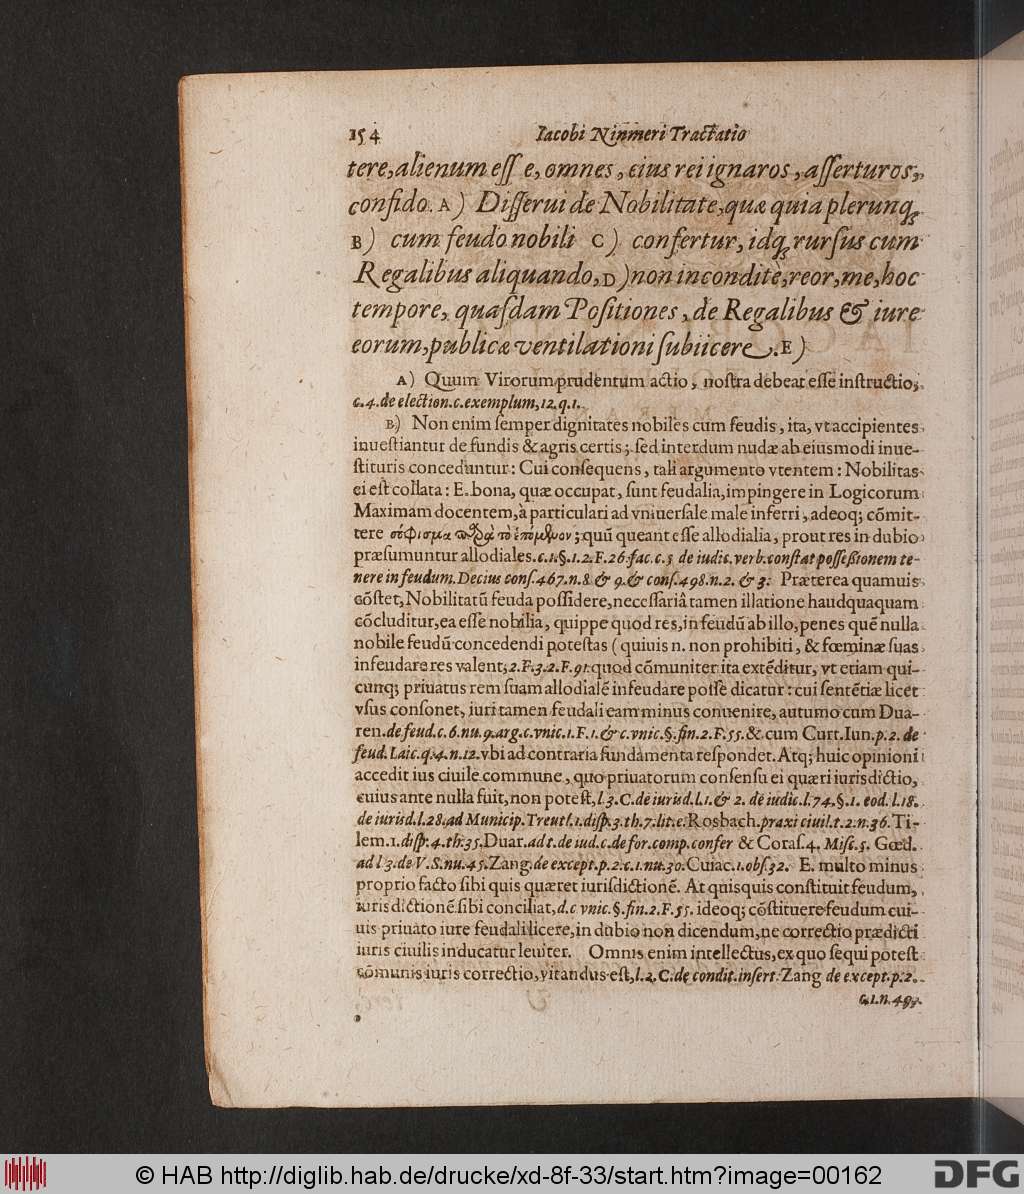 154 Iacobi Ninmeri Tractatio
tere, alienum eſſe, omnes, eius rei ignaros, aſſerturos,
confido. A) Diſſerui de Nobilitate, quæ quia plerunq;
B) cum feudo nobili C) confertur, idq; rurſus cum
Regalibus aliquando, D) non inconditè, reor, me, hoc
tempore, quaſdam Poſitiones, de Regalibus & iure
eorum, publicæ ventilationi ſubiicere. E)
A) Quum Virorum prudentum actio, noſtra debeat eſſe inſtructio,
c. 4. de election. c. exemplum, 12. q. 1.
B) Non enim ſemper dignitates nobiles cum feudis, ita, vt accipientes
inueſtiantur de fundis & agris certis; ſed interdum nudæ ab eiusmodi inue-
ſtituris conceduntur: Cui conſequens, tali argumento vtentem: Nobilitas
ei eſt collata: E. bona, quæ occupat, ſunt feudalia, impingere in Logicorum
Maximam docentem, à particulari ad vniuerſale male inferri, adeoq; cõmit-
tere σόφισμα παρὰ τὸ ἑπόμενον; quũ queant eſſe allodialia, prout res in dubio
præſumuntur allodiales. c. 1. §. 1. 2. F. 26. fac. c. 5 de iudic. verb. conſtat poſſeßionem te-
nere in feudum. Decius conſ. 467. n. 8 & 9. & conſ. 498. n. 2. & 3. Præterea quamuis
cõſtet, Nobilitatũ feuda poſſidere, neceſſariâ tamen illatione haudquaquam
cõcluditur, ea eſſe nobilia, quippe quod res, in feudũ ab illo, penes quẽ nulla
nobile feudũ concedendi poteſtas (quiuis n. non prohibiti, & fœminæ ſuas
infeudare res valent, 2. F. 3. 2. F. 91. quod cõmuniter ita extẽditur, vt etiam qui-
cunq; priuatus rem ſuam allodialẽ infeudare poſſe dicatur: cui ſentẽtiæ licet
vſus conſonet, iuri tamen feudali eam minus conuenire, autumo cum Dua-
ren. de feud. c. 6. nu. 9. arg. c. vnic. 1. F. 1. & c. vnic. §. fin. 2. F. 55. & cum Curt. Iun. p. 2. de
feud. Laic. q. 4. n. 12. vbi ad contraria fundamenta reſpondet. Atq; huic opinioni
accedit ius ciuile commune, quo priuatorum conſenſu ei quæri iurisdictio,
cuius ante nulla fuit, non poteſt, l. 3. C. de iurisd. l. 1. & 2. de iudic. l. 74. §. 1. eod. l. 18.
de iurisd. l. 28. ad Municip. Treutl. 1. diſp. 3. th. 7. lit. e. Rosbach. praxi ciuil. t. 2. n. 36. Ti-
lem. 1. diſp. 4. th. 35. Duar. ad t. de iud. c. de for. comp. confer & Coraſ. 4. Miſc. 5. Gœd.
ad l 3. de V. S. nu. 45. Zang. de except. p. 2. c. 1. nu. 30. Cuiac. 1. obſ. 32. E. multo minus
proprio facto ſibi quis quæret iurisdictionẽ. At quisquis conſtituit feudum,
iurisdictionẽ ſibi conciliat, d. c vnic. §. fin. 2. F. 55. ideoq; cõſtituere feudum cui-
uis priuato iure feudali licere, in dubio non dicendum, ne correctio prædicti
iuris ciuilis inducatur leuiter. Omnis enim intellectus, ex quo ſequi poteſt
cõmunis iuris correctio, vitandus eſt, l. 2. C. de condit. inſert. Zang de except. p. 2.
c. 1. n. 49.
© HAB http://diglib.hab.de/drucke/xd-8f-33/start.htm?image=00162
DFG